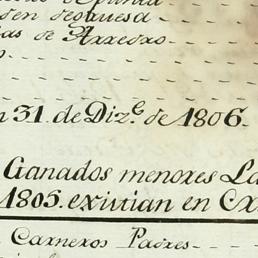 sen deguesa
as de Arredro
n 31. de Diz.e de 1806.
Ganados menores La
1805. existian en Cx
Carneros Padres